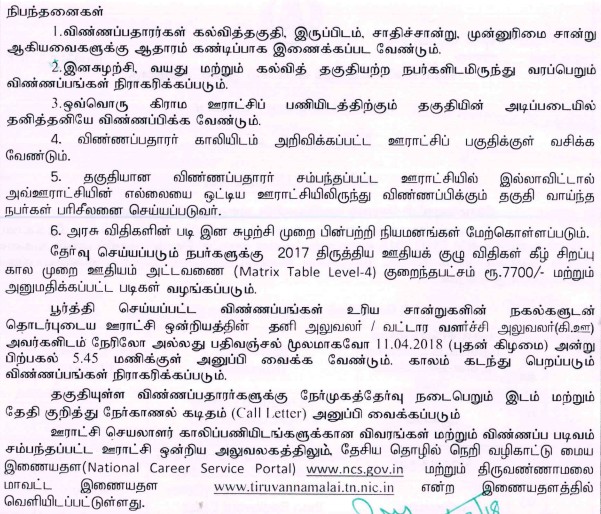 நிபந்தனைகள்
1.விண்ணப்பதாரர்கள் கல்வித்தகுதி, இருப்பிடம், சாதிச்சான்று, முன்னுரிமை சான்று
ஆகியவைகளுக்கு ஆதாரம் கண்டிப்பாக இணைக்கப்பட வேண்டும்.
2.இனசுழற்சி, வயது மற்றும் கல்வித் தகுதியற்ற நபர்களிடமிருந்து வரப்பெறும்
விண்ணப்பங்கள் நிராகரிக்கப்படும்.
3.ஒவ்வொரு கிராம ஊராட்சிப் பணியிடத்திற்கும் தகுதியின் அடிப்படையில்
தனித்தனியே விண்ணப்பிக்க வேண்டும்.
4. விண்ணப்பதாரர் காலியிடம் அறிவிக்கப்பட்ட ஊராட்சிப் பகுதிக்குள் வசிக்க
வேண்டும்.
5. தகுதியான விண்ணப்பதாரர் சம்பந்தப்பட்ட ஊராட்சியில் இல்லாவிட்டால்
அவ்ஊராட்சியின் எல்லையை ஒட்டிய ஊராட்சியிலிருந்து விண்ணப்பிக்கும் தகுதி வாய்ந்த
நபர்கள் பரிசீலனை செய்யப்படுவர்.
6. அரசு விதிகளின் படி இன சுழற்சி முறை பின்பற்றி நியமனங்கள் மேற்கொள்ளப்படும்.
தேர்வு செய்யப்படும் நபர்களுக்கு 2017 திருத்திய ஊதியக் குழு விதிகள் கீழ் சிறப்பு
கால முறை ஊதியம் அட்டவணை (Matrix Table Level-4) குறைந்தபட்சம் ரூ.7700/- மற்றும்
அனுமதிக்கப்பட்ட படிகள் வழங்கப்படும்.
பூர்த்தி செய்யப்பட்ட விண்ணப்பங்கள் உரிய சான்றுகளின் நகல்களுடன்
தொடர்புடைய ஊராட்சி ஒன்றியத்தின் தனி அலுவலர் / வட்டார வளர்ச்சி அலுவலர்(கி.ஊ)
அவர்களிடம் நேரிலோ அல்லது பதிவஞ்சல் மூலமாகவோ 11.04.2018 (புதன் கிழமை) அன்று
பிற்பகல் 5.45 மணிக்குள் அனுப்பி வைக்க வேண்டும். காலம் கடந்து பெறப்படும்
விண்ணப்பங்கள் நிராகரிக்கப்படும்.
தகுதியுள்ள விண்ணப்பதாரர்களுக்கு நேர்முகத்தேர்வு நடைபெறும் இடம் மற்றும்
தேதி குறித்து நேர்காணல் கடிதம் (Call Letter) அனுப்பி வைக்கப்படும்
ஊராட்சி செயலாளர் காலிப்பணியிடங்களுக்கான விவரங்கள் மற்றும் விண்ணப்ப படிவம்
சம்பந்தப்பட்ட ஊராட்சி ஒன்றிய அலுவலகத்திலும், தேசிய தொழில் நெறி வழிகாட்டு மைய
இணையதள(National Career Service Portal) www.ncs.gov.in மற்றும் திருவண்ணாமலை
மாவட்ட இணையதள www.tiruvannamalai.tn.nic.in என்ற இணையதளத்தில்
வெளியிடப்பட்டுள்ளது.